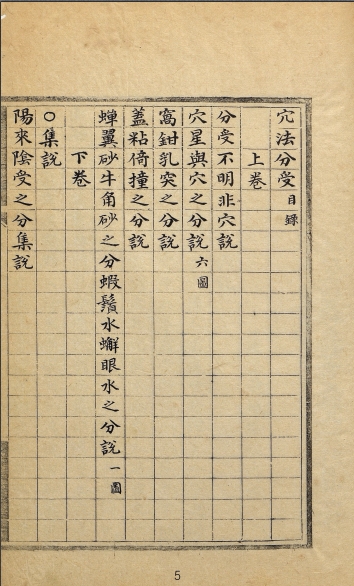 穴法分受目錄
上卷
分受不明非穴說
穴星與穴之分說六圖
窩鉗乳突之分說
蓋粘倚撞之分說
蟬翼砂牛角砂之分蝦鬚水蠏眼水之分說一圖
下卷
○集說
陽來陰受之分集說
5